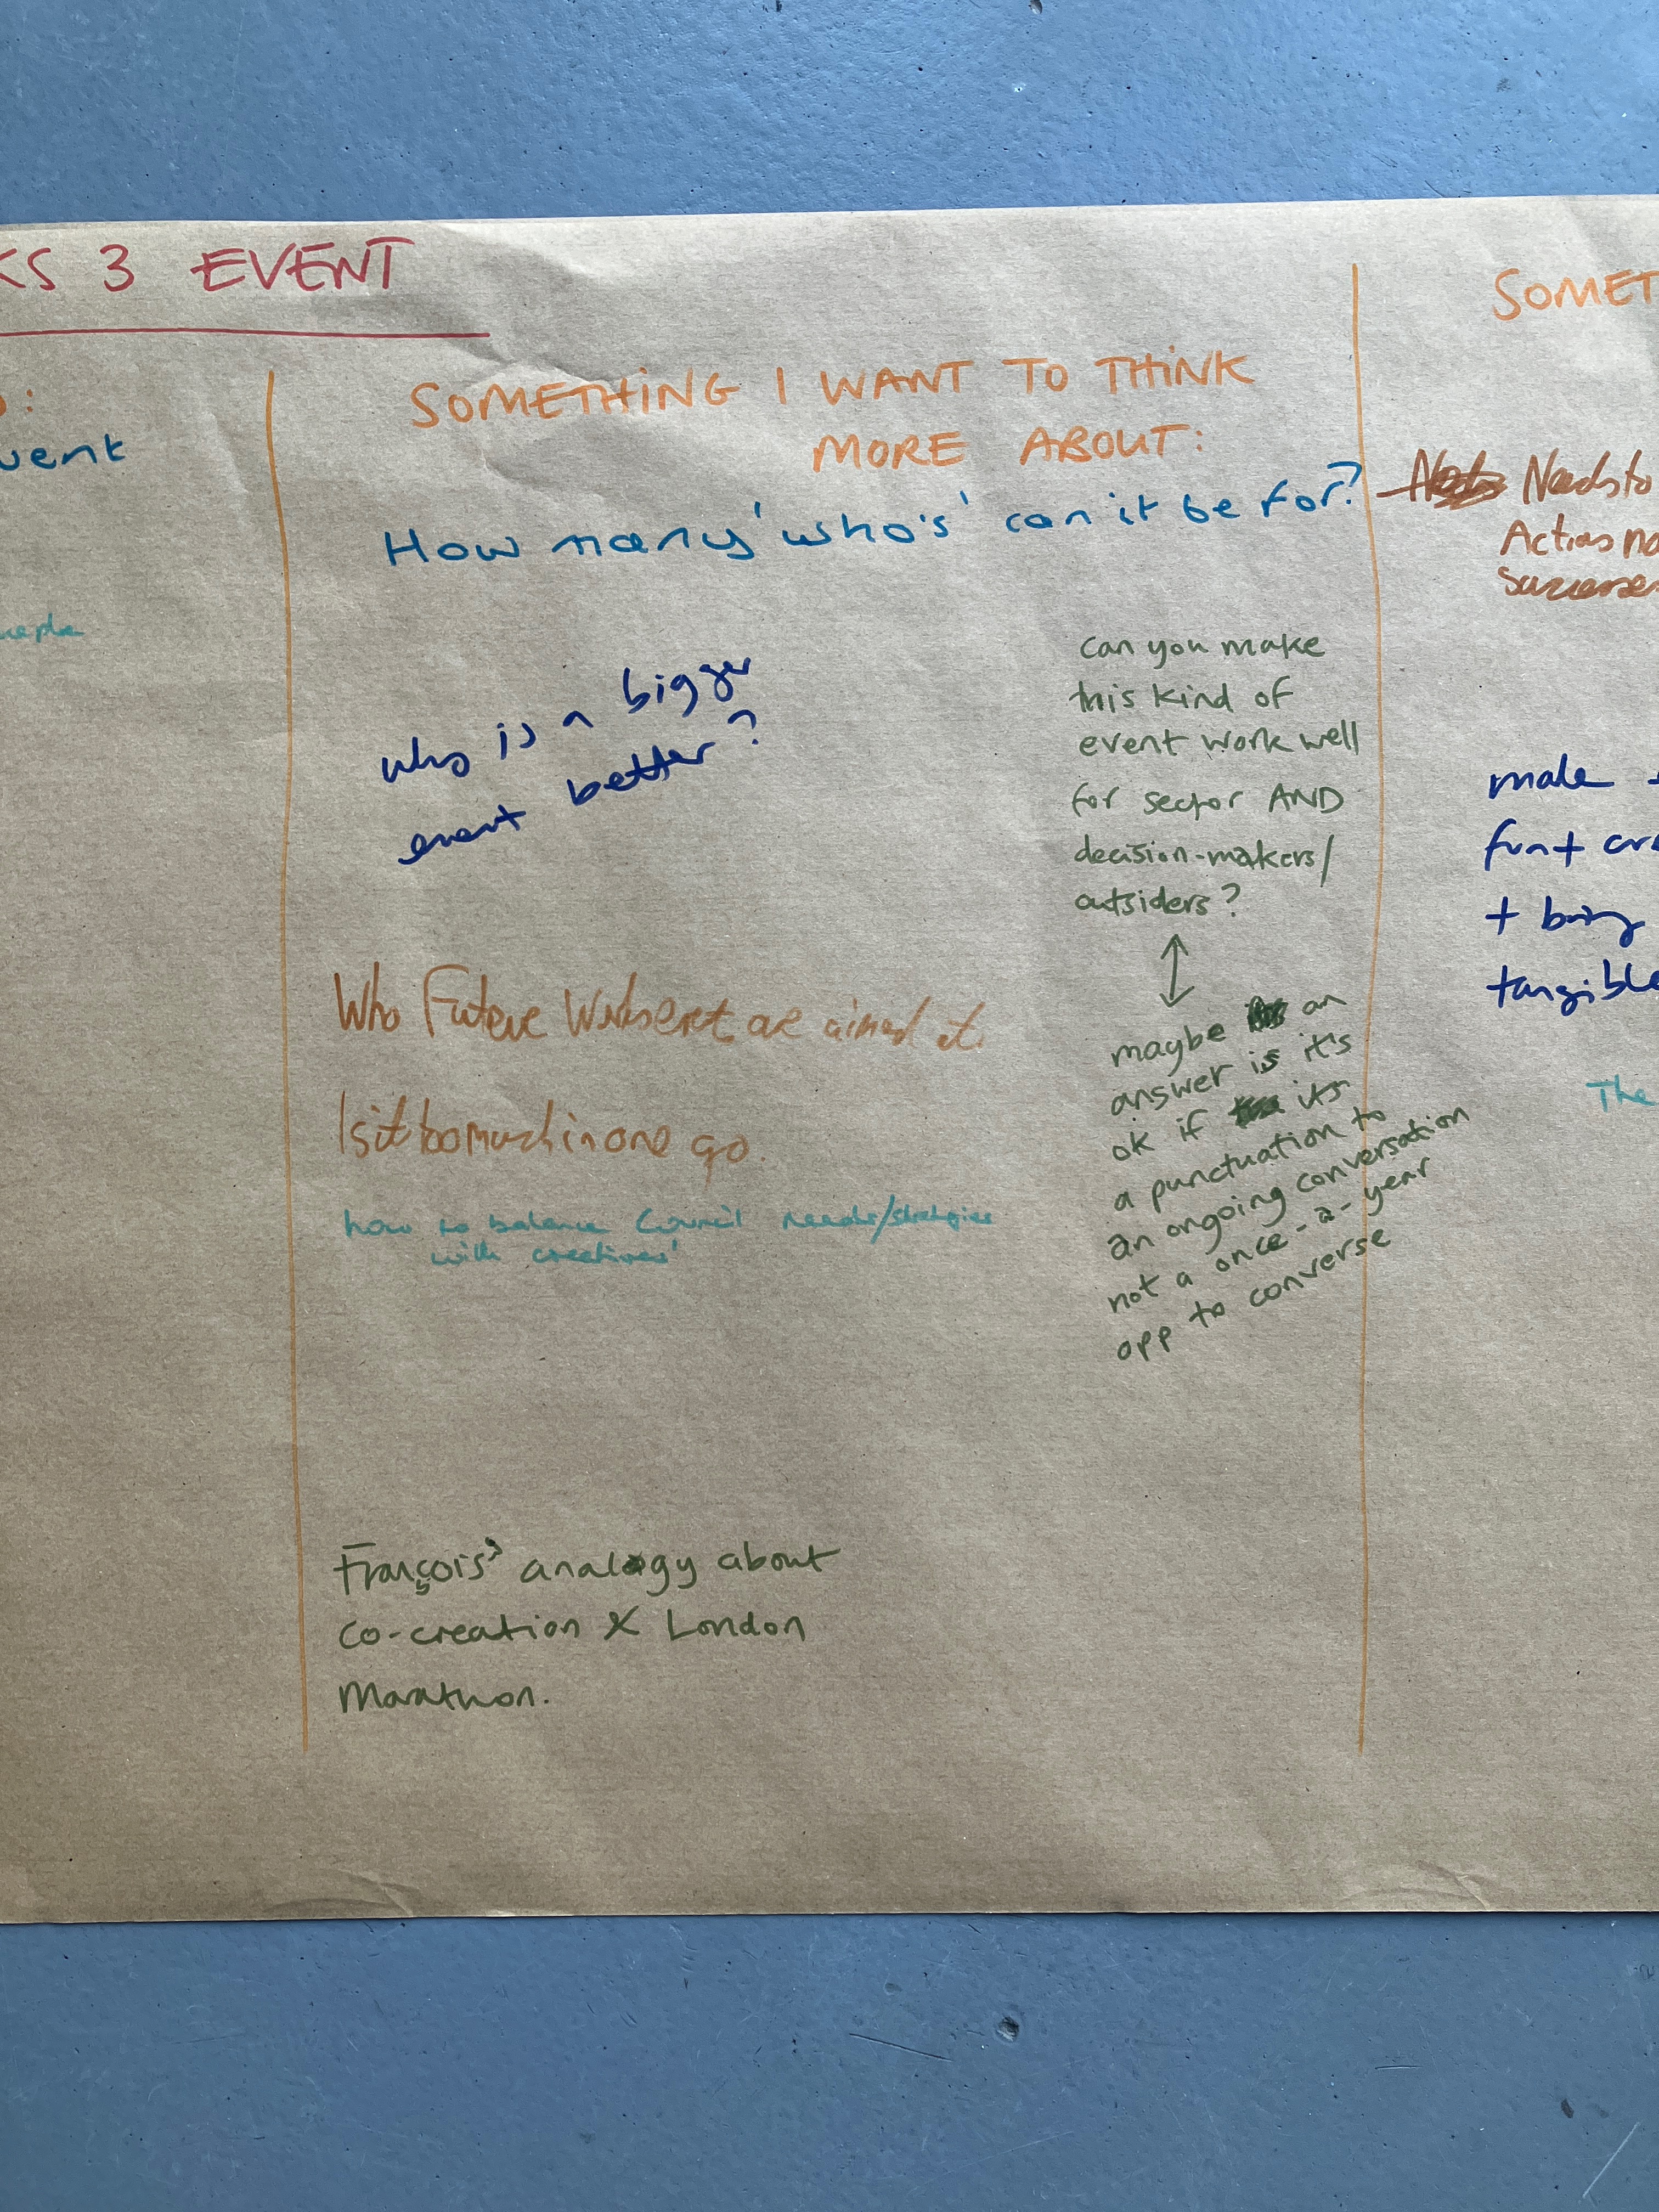 KS 3 EVENT
:
vent
SOMETHING I WANT TO THINK
MORE ABOUT:
How many 'who's' can it be for?
who is a bigger
event better?
can you make
this kind of
event work well
for sector AND
decision-makers/
outsiders?
maybe an
answer is it's
ok if its
a punctuation to
an ongoing conversation
not a once-a-year
opp to converse
Who Future Works are aimed at.
Is it too much in one go.
how to balance Council needs/strategies
with creatives'
François' analogy about
co-creation & London
Marathon.
SOMET
Needs to
Action no
make
fun +
+ bring
tangible
The